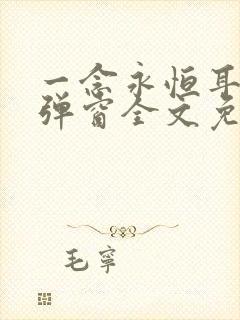 一念永恒耳
弹窗全文免
毛寧